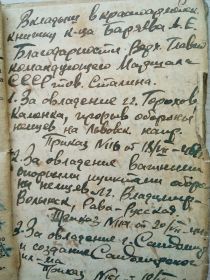 Вкладыш в красноармейск.
книжку к-ца Баряева А.Е.
Благодарности Верх. Главно
командующего Маршала
СССР тов. Сталина.
1. За овладение гг. Горохов,
прорыв обороны
немцев на Львовск. напр.
Приказ №
2. За овладение важными
опорными пунктами оборо
ны немцев гг. Владимир-
Волынск, Рава-Русская
Приказ № 144 от 20/VII-
3. За овладение г. Сандомир
и создание Сандомирского
пл-ма
Приказ №